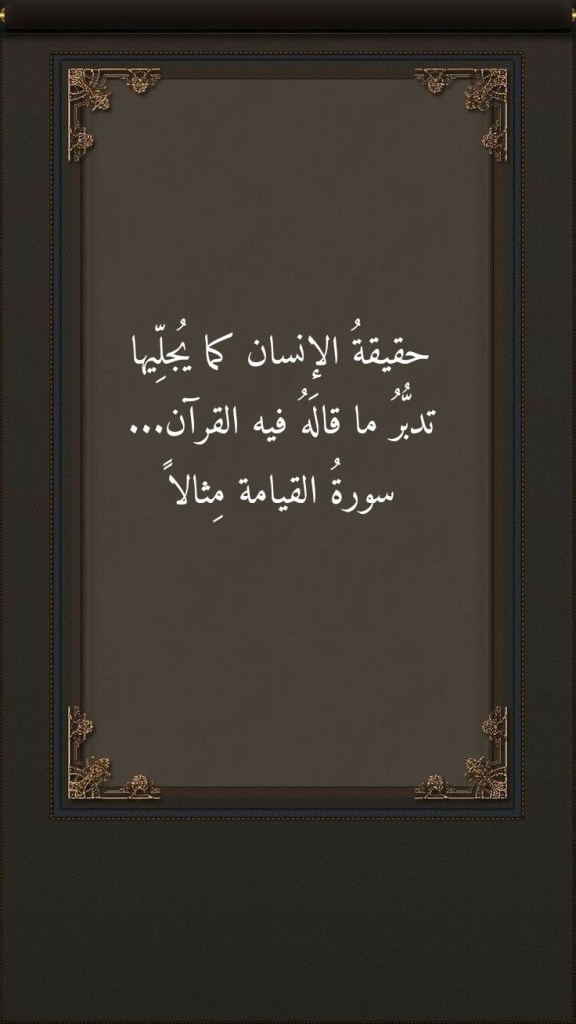 حقيقةُ الإنسان كما يُجلِّيها
تدبُّرُ ما قالَهُ فيه القرآن...
سورةُ القيامة مِثالاً